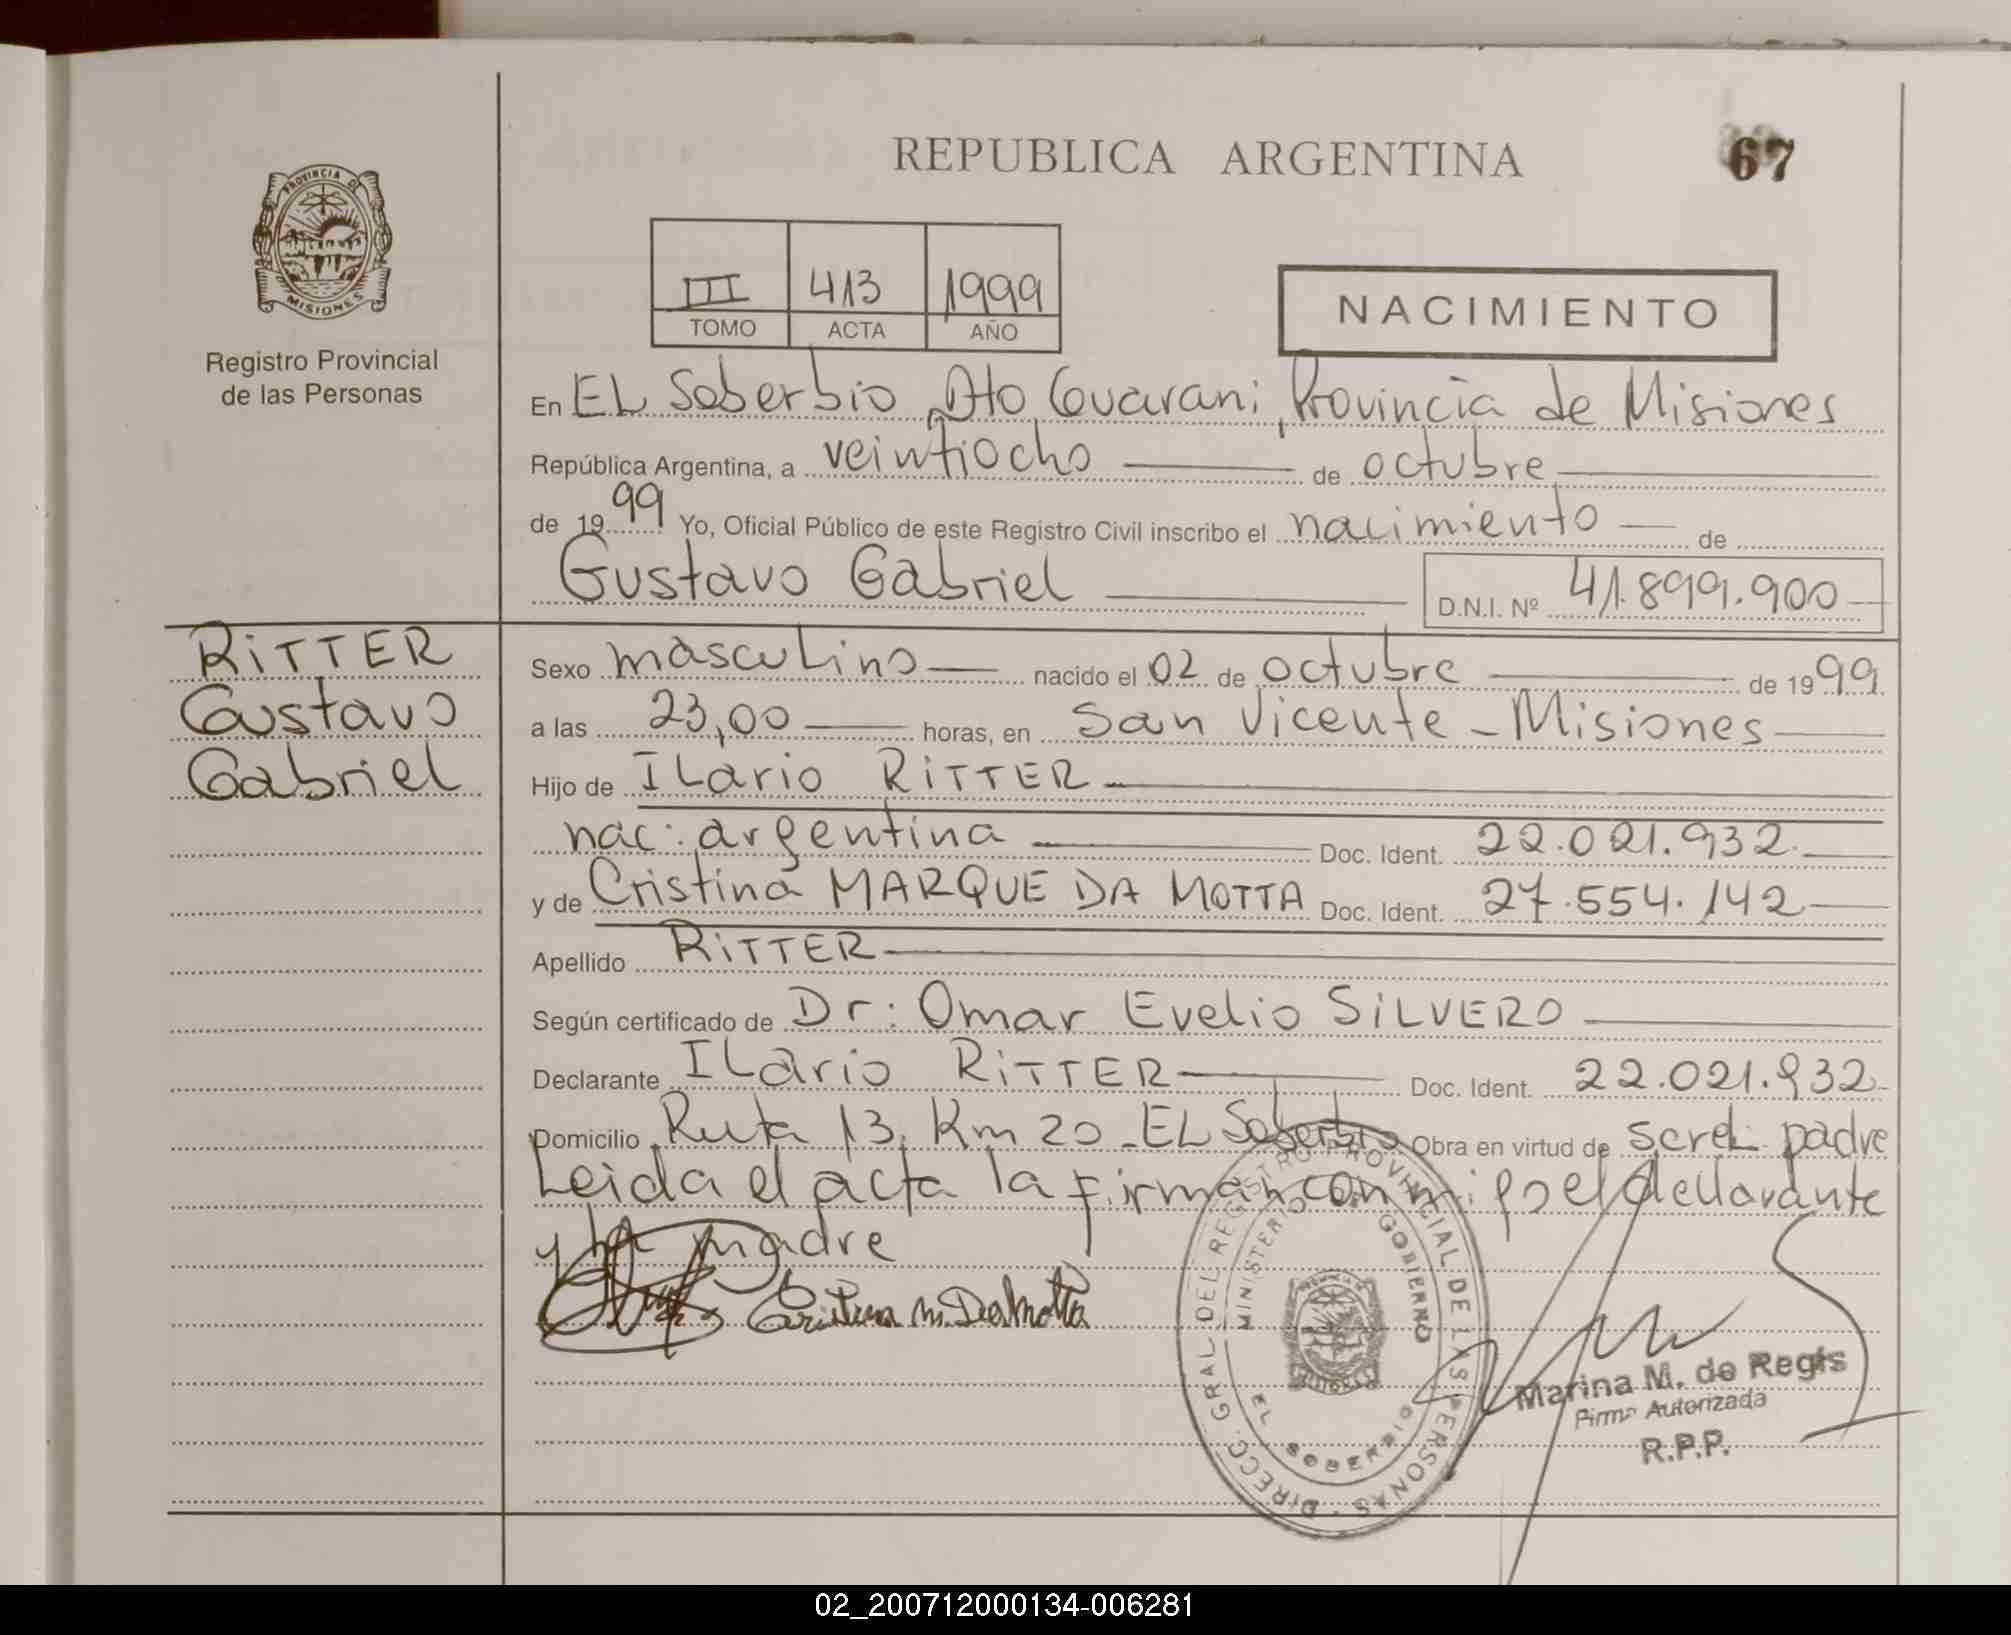 REPUBLICA ARGENTINA
67
PROVINCIA DE
MISIONES
Registro Provincial
de las Personas
III 413 1999
TOMO ACTA AÑO
NACIMIENTO
En EL Soberbio, Dto Guarani, Provincia de Misiones
República Argentina, a veintiocho de octubre
de 1999 Yo, Oficial Público de este Registro Civil inscribo el nacimiento de
Gustavo Gabriel D.N.I. Nº 41.899.900
RiTTER
Gustavo
Gabriel
Sexo masculino nacido el 02 de octubre de 1999
a las 23,00 horas, en San Vicente - Misiones
Hijo de ILario RiTTER
nac: argentina Doc. Ident. 22.021.932
y de Cristina MARQUE DA MOTTA Doc. Ident. 27.554.142
Apellido RiTTER
Según certificado de Dr: Omar Evelio SiLVERO
Declarante ILario RiTTER Doc. Ident. 22.021.932
Domicilio Ruta 13, Km 20 - EL Soberbio Obra en virtud de ser el padre
Leida el acta la firman con migo el declarante
y la madre
Cristina M. Da Motta
DIRECC. GRAL DEL REGISTRO PROVINCIAL DE LAS PERSONAS
MINISTERIO DE GOBIERNO
EL SOBERBIO
Marina M. de Regis
Firma Autorizada
R.P.P.
02_200712000134-006281